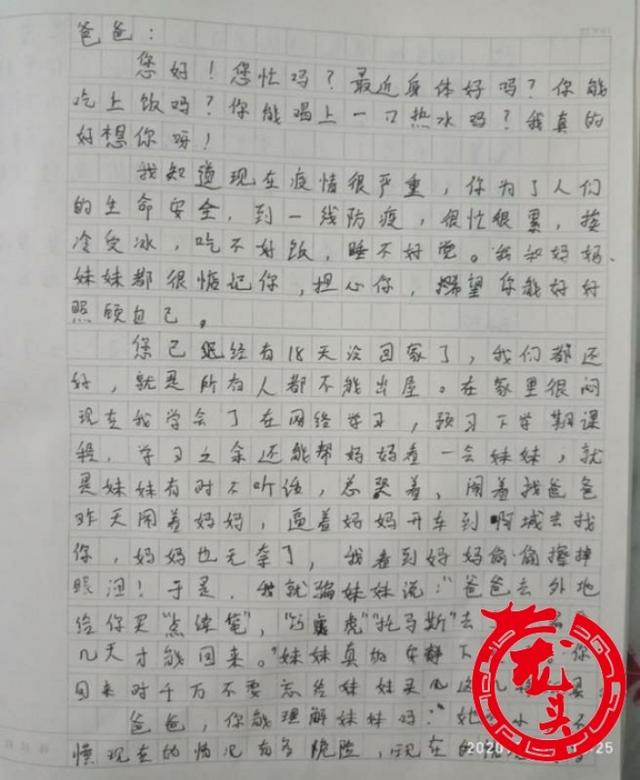 爸爸：
您好！您忙吗？最近身体好吗？你能
吃上饭吗？你能喝上一口热水吗？我真的
好想你呀！
我知道现在疫情很严重，你为了人们
的生命安全，到一线防疫，很忙很累，挨
冷受冰，吃不好饭，睡不好觉。我和妈妈、
妹妹都很惦记你，担心你，希望你能好好
照顾自己。
您已经有18天没回家了，我们都还
好，就是所有人都不能出屋。在家里很闷
现在我学会了在网络学习，预习下学期课
程，学习之余还能帮妈妈看一会妹妹，就
是妹妹有时不听话，总哭着，闹着找爸爸
昨天闹着妈妈，逼着妈妈开车到 城去找
你，妈妈也无拿了，我看到妈妈偷偷擦掉
眼泪！于是，我就骗妹妹说："爸爸去外地
给你买"点读笔"，" 虎""托马斯"去
几天才能回来。"妹妹真的安静下 你
回来时千万不要忘给妹妹买
爸爸，你能理解妹妹吗？她 小 不
懂现在的情况有多危险，现在的
龙头
2020 25